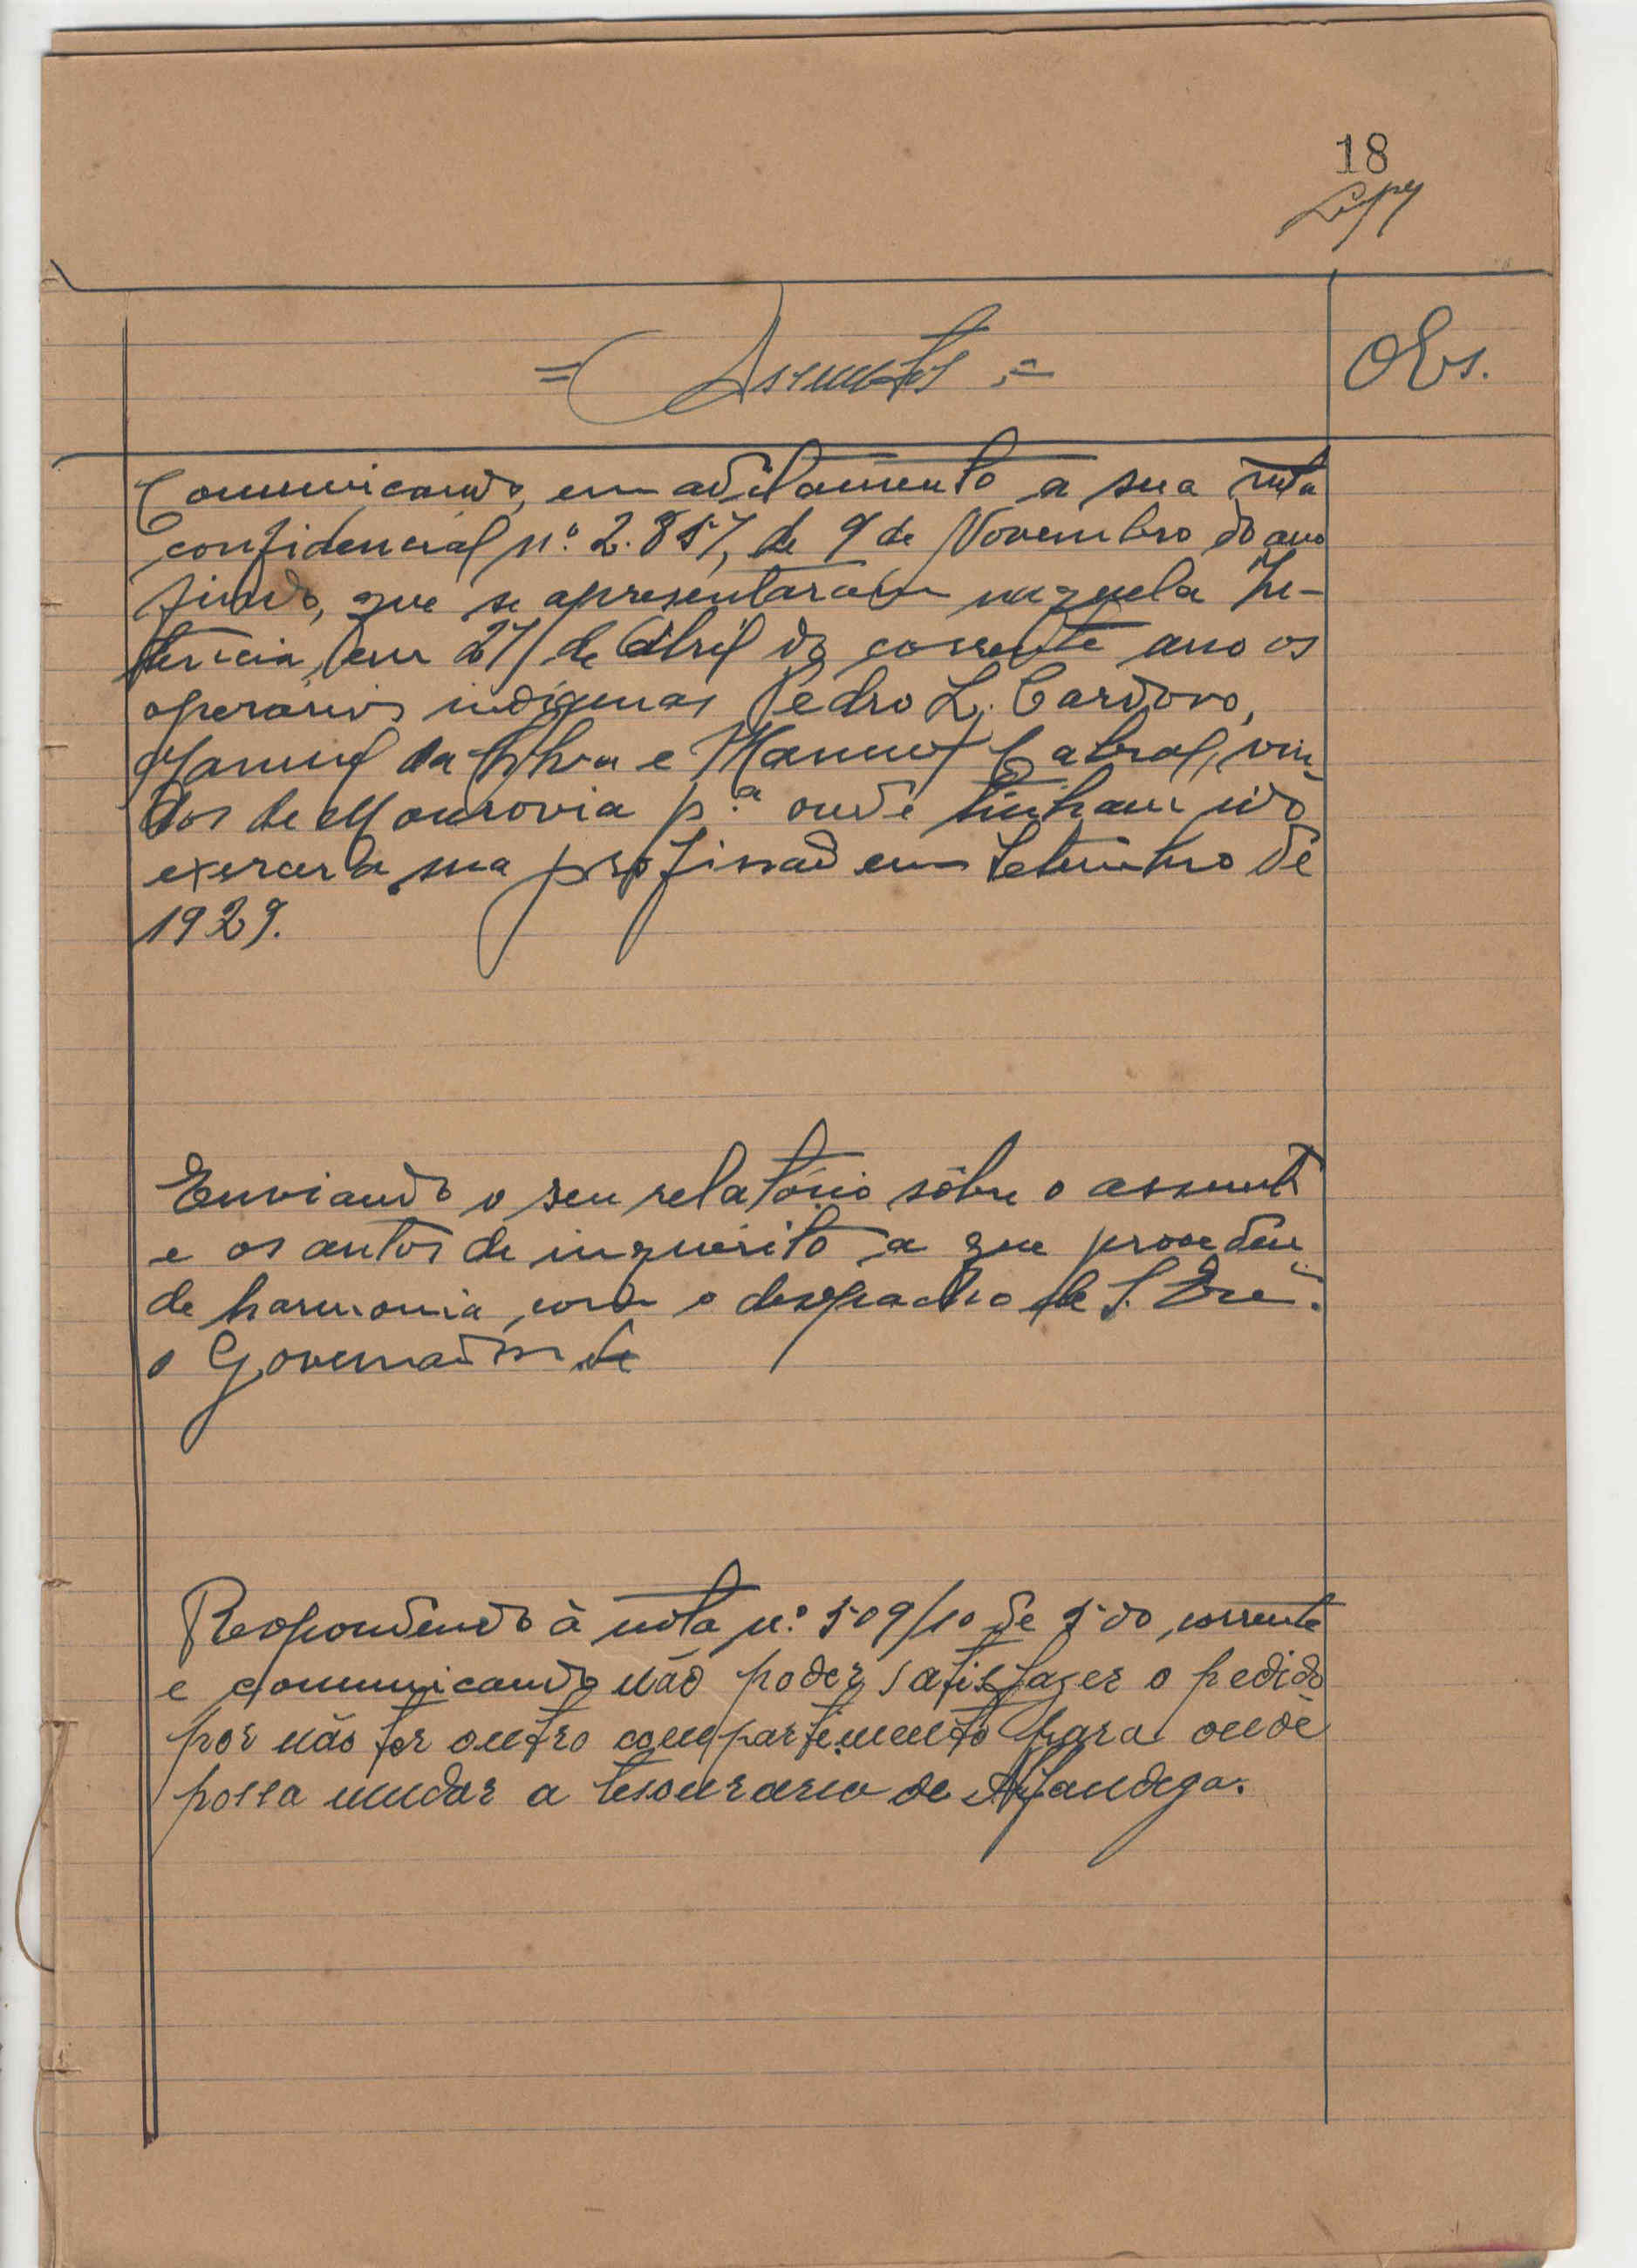 18
= Assuntos =
Obs.
Comunicando, em aditamento a sua nota
confidencial n.º 2.857, de 9 de Novembro do ano
findo, que se apresentaram naquela In-
tência, em 27 de Abril do corrente ano os
operários indígenas Pedro L. Cardoso,
Manuel da Silva e Manuel Cabral, vin-
dos de Monrovia p.ª onde tinham ido
exercer a sua profissão em Setembro de
1929.
Enviando o seu relatório sôbre o assunto
e os autos de inquérito a que procedeu
de harmonia com o despacho de S. Exc.ª
o Governador de
Respondendo à nota n.º 509/10 de 5 do corrente
e comunicando não poder satisfazer o pedido
por não ter outro compartimento para onde
possa mudar a tesouraria de Alfandega.